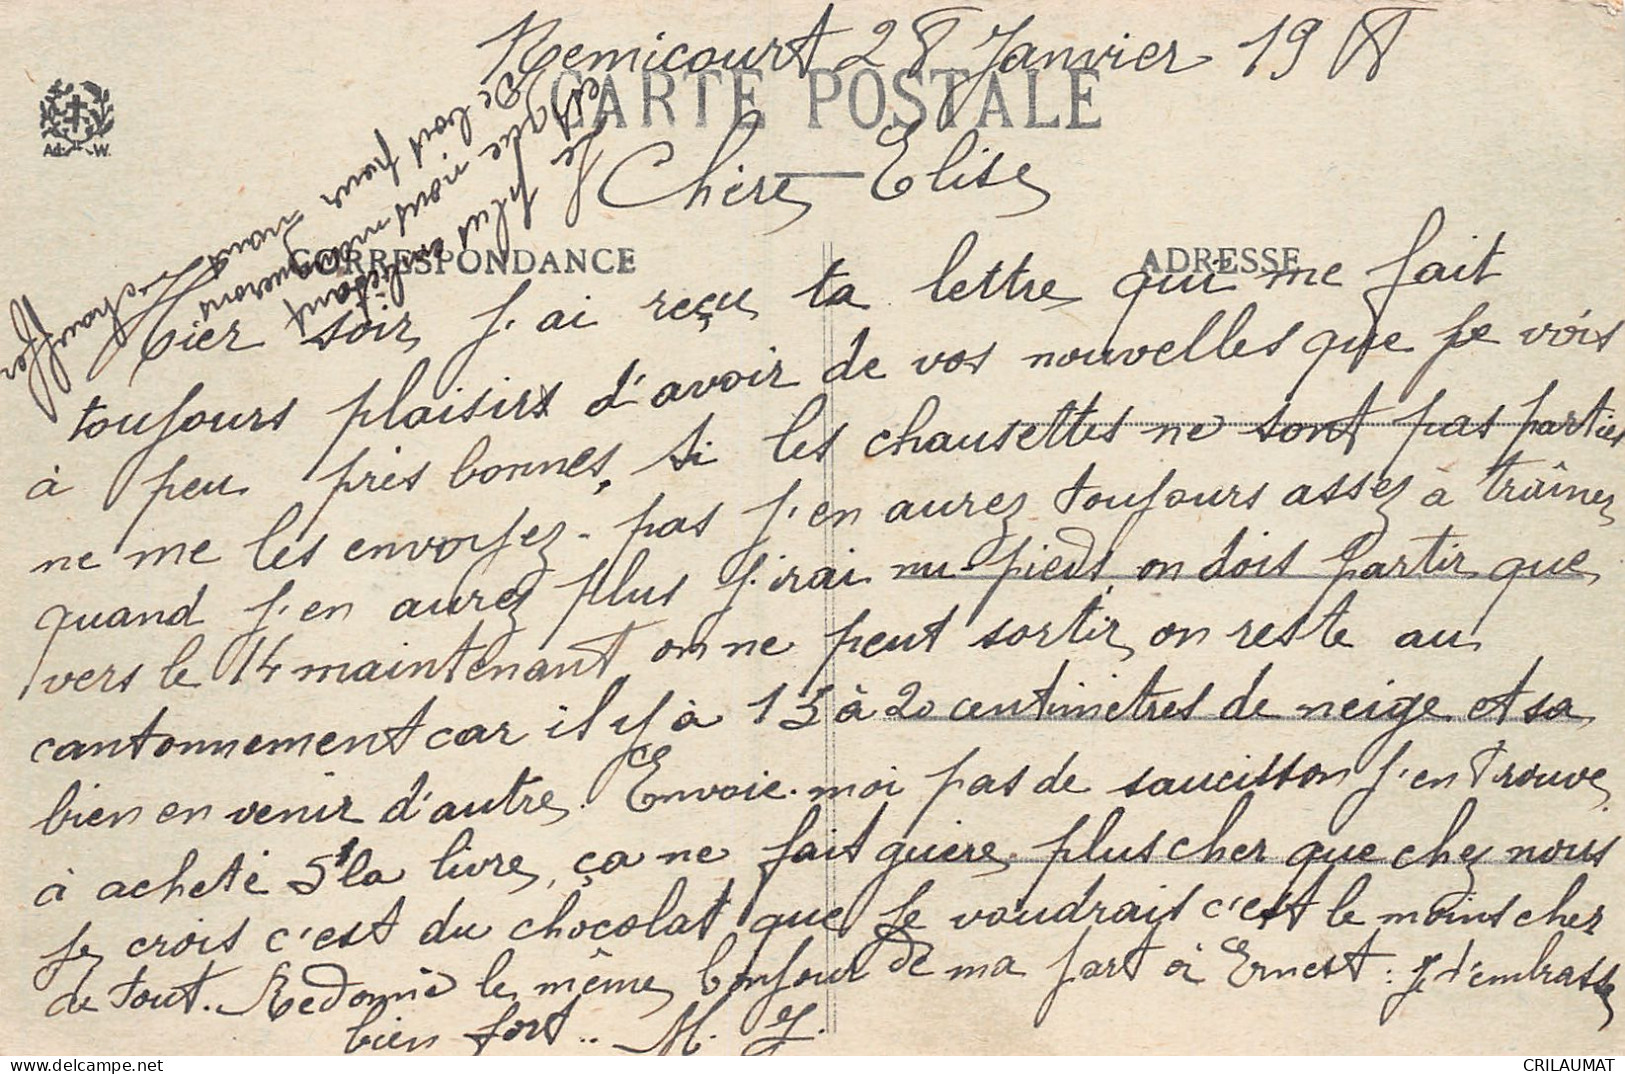 Remicourt 28 Janvier 19
CARTE POSTALE
Chère Elise
CORRESPONDANCE
ADRESSE
Ad. W.
Hier soir j'ai reçu ta lettre qui me fait
toujours plaisirs d'avoir de vos nouvelles que je vois
à peu près bonnes, si les chausettes ne sont pas parties
ne me les envoyez-pas j'en aurez toujours assez à traîner
quand j'en aurez plus j'irai nu-pieds, on dois partir que
vers le 14 maintenant on ne peut sortir, on reste au
cantonnement car il y à 15 à 20 centimètres de neige et sa
bien en venir d'autre. Envoie-moi pas de saucisson j'en trouve
à acheté 5f la livre, ça ne fait guère plus cher que chez nous
je crois c'est du chocolat que je voudrais c'est le moins cher
de tout. Redonne le même bonjour de ma part à Ernest : Je t'embrasse
bien fort .. M. J.
Le plus embêtant
est que nous manquerons
De bois pour nous
rechauffer
CRILAUMAT